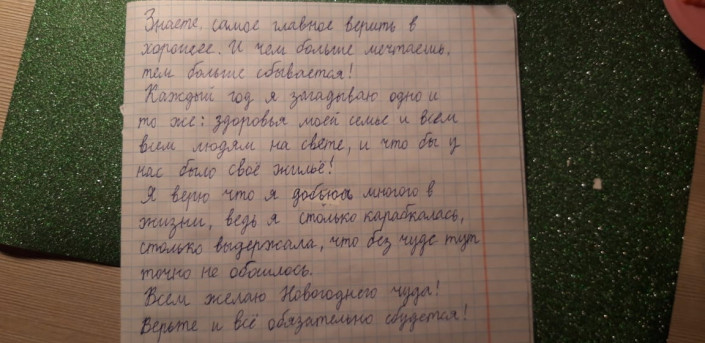 Знаете, самое главное верить в
хорошее. И чем больше мечтаешь,
тем больше сбывается!
Каждый год я загадываю одно и
то же: здоровья моей семье и всем
всем людям на свете, и что бы у
нас было своё жильё!
Я верю что я добьюся многого в
жизни, ведь я столько карабкалась,
столько выдержала, что без чуда тут
точно не обошлось.
Всем желаю Новогоднего чуда!
Верьте и всё обязательно сбудется!